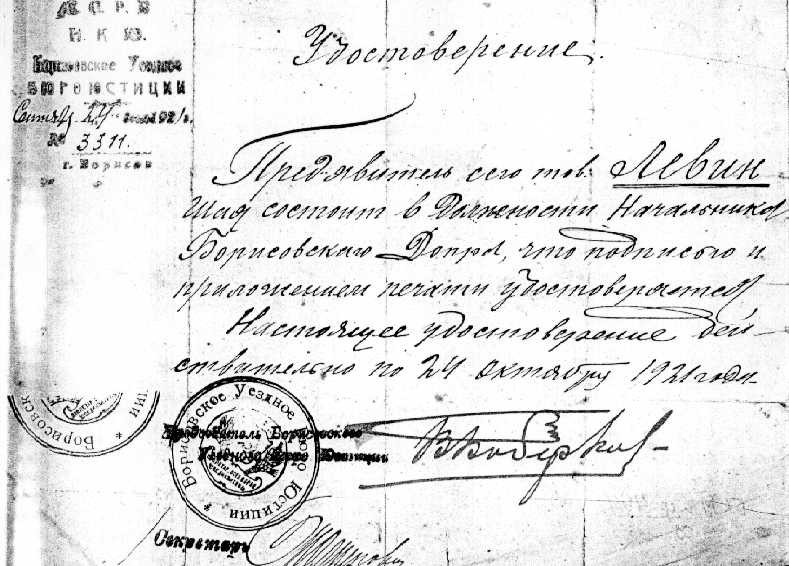 Н. К. Ю.
Борисовское Уездное
БЮРО ЮСТИЦИИ
№ 3311.
г. Борисов
Удостоверение.
Предъявитель сего тов. Левин
состоит в Должности Начальника
Борисовскаго Допра, что подписью и
приложением печати удостоверяется
Настоящее удостоверение дей-
ствительно по 24 Октября 1921 года
Председатель Борисовского
Уездного Бюро Юстиции
Борисовское Уездное Бюро Юстиции *
* Борисовск ии
Секретарь